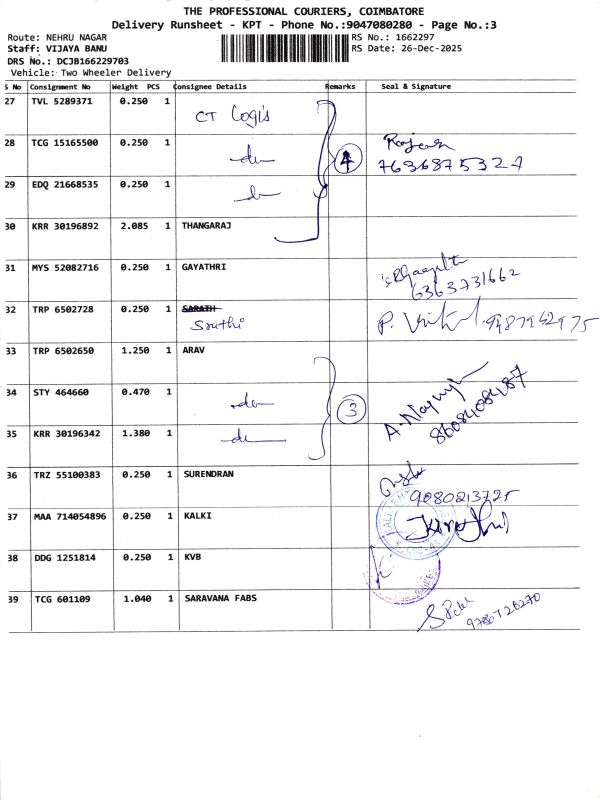 THE PROFESSIONAL COURIERS, COIMBATORE
Delivery Runsheet - KPT - Phone No.:9047080280 - Page No.:3
Route: NEHRU NAGAR
Staff: VIJAYA BANU
DRS No.: DCJB166229703
Vehicle: Two Wheeler Delivery
RS No.: 1662297
RS Date: 26-Dec-2025
S No Consignment No Weight PCS Consignee Details Remarks Seal & Signature
27 TVL 5289371 0.250 1 CT Logis
28 TCG 15165500 0.250 1 4 Rajesh
7636875327
29 EDQ 21668535 0.250 1
30 KRR 30196892 2.085 1 THANGARAJ
31 MYS 52082716 0.250 1 GAYATHRI
6363731662
32 TRP 6502728 0.250 1 SARATH
33 TRP 6502650 1.250 1 ARAV
34 STY 464660 0.470 1 3
8608408487
35 KRR 30196342 1.380 1
36 TRZ 55100383 0.250 1 SURENDRAN
9080213725
37 MAA 714054896 0.250 1 KALKI
38 DDG 1251814 0.250 1 KVB
39 TCG 601109 1.040 1 SARAVANA FABS